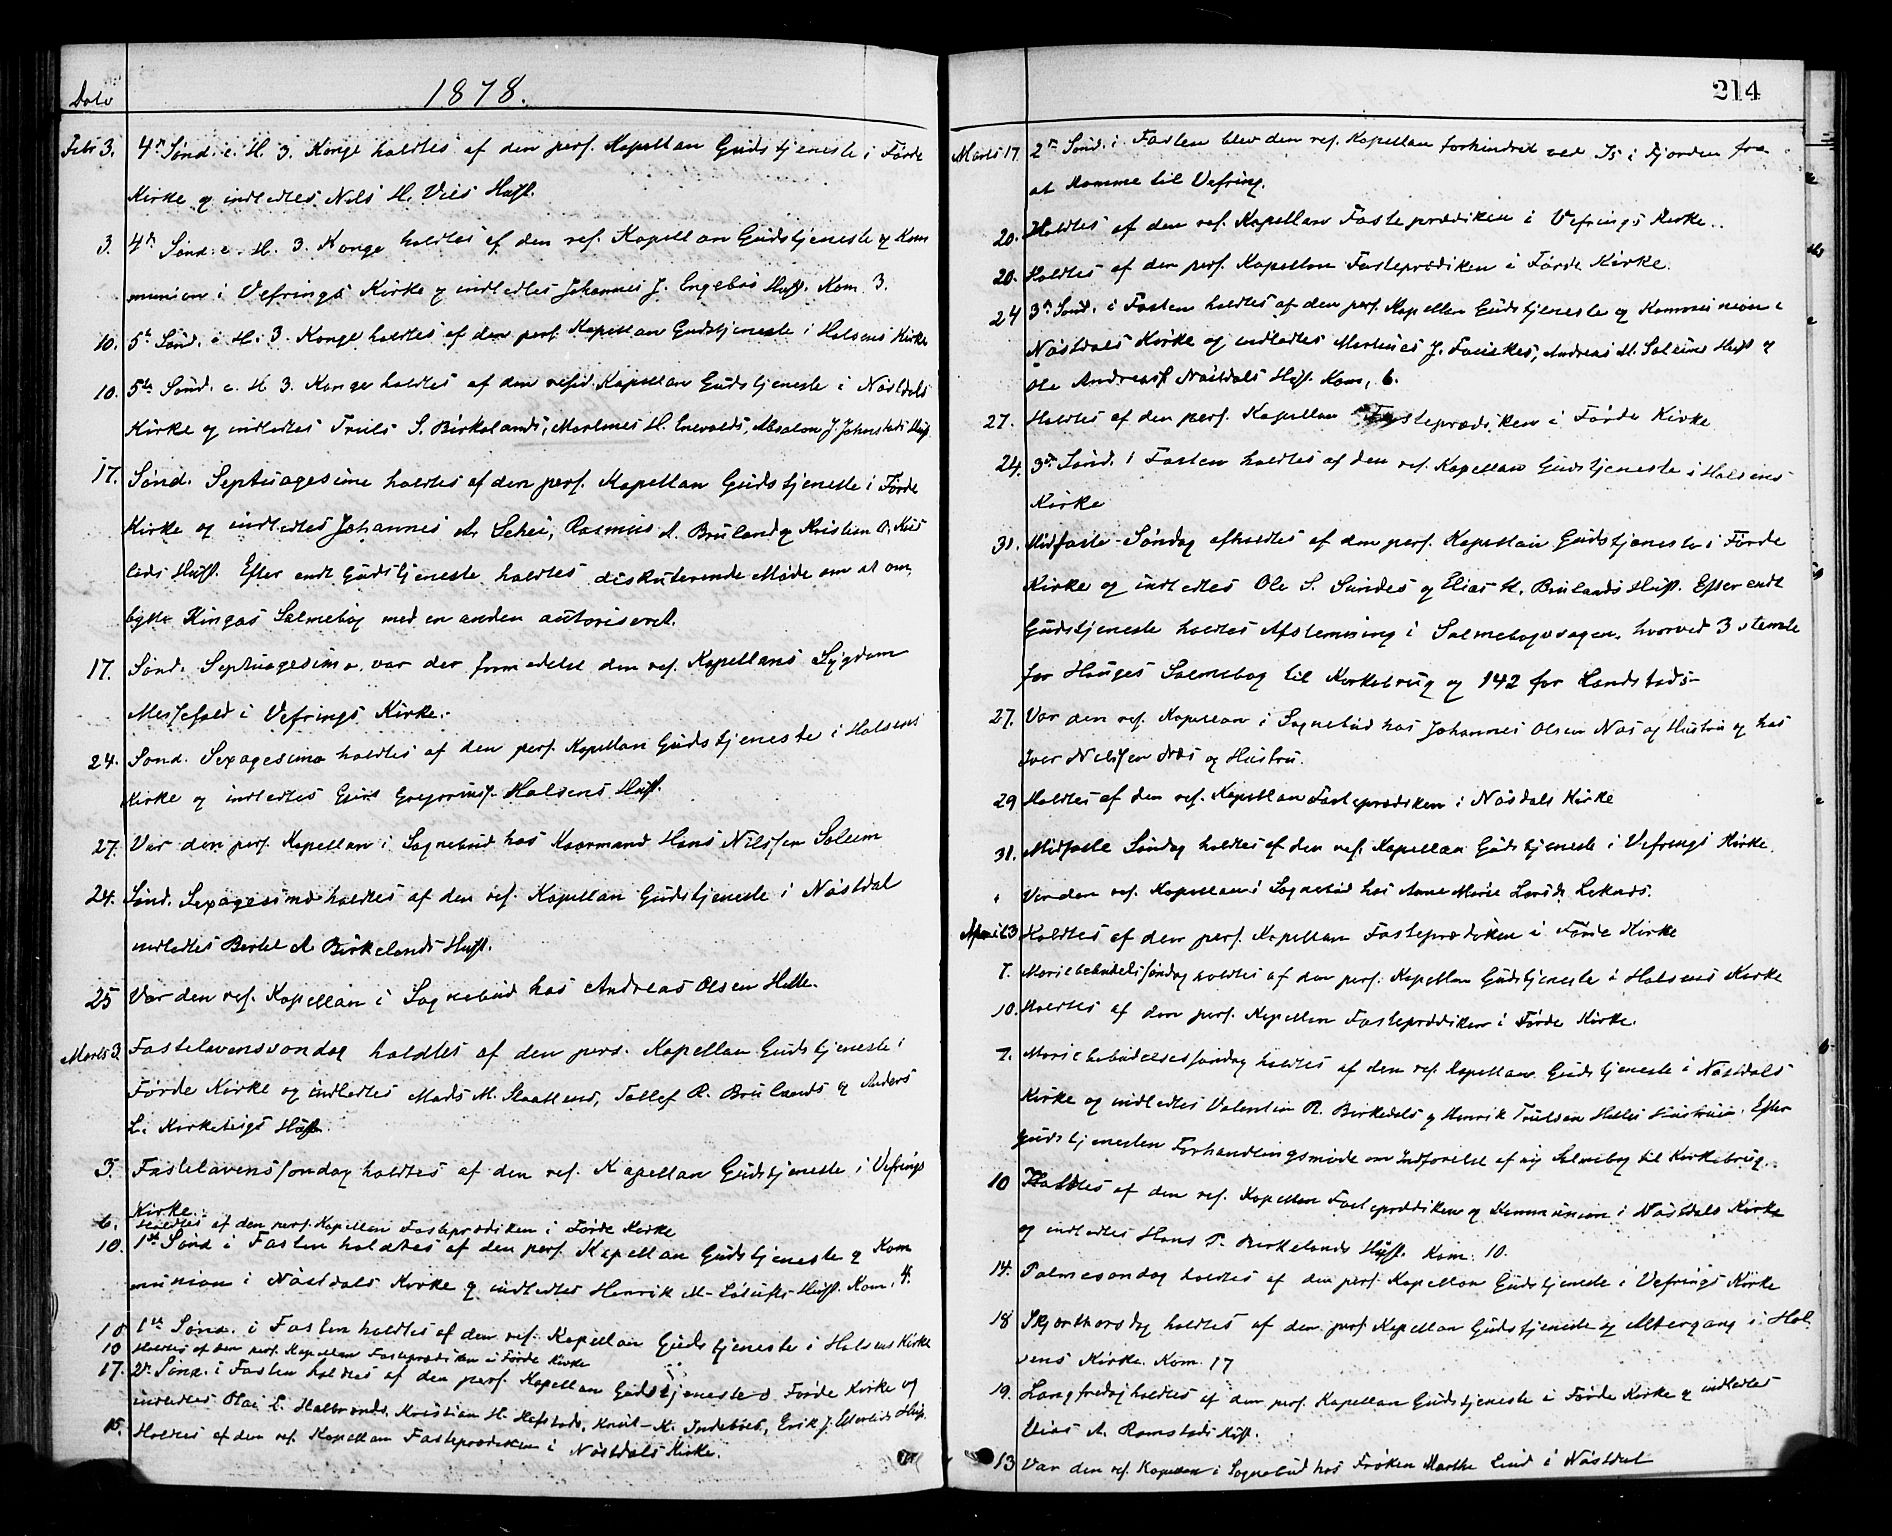 Dato
1878.
Febr 3. 4de Sønd. e. H. 3. Konge holdtes af den pers. Kapellan Gudstjeneste i Førde
Kirke og indledtes Nils H. Vies Hust.
3. 4de Sønd. e. H. 3. Konge holdtes af den res. Kapellan Gudstjeneste og Kom
munion i Vefrings Kirke og indledtes Johannes J. Engebøs Hust. Kom. 3.
10. 5te Sønd. e. H. 3 Konge holdtes af den pers. Kapellan Gudstjeneste i Holsens Kirke
10. 5te Sønd. e. H 3. Konge holdtes af den resid. Kapellan Gudstjeneste i Nøstdals
Kirke og indledtes Truls S. Birkelands, Martinus H. Absalon J. Hust
17. Sønd. Septuagesima holdtes af den pers. Kapellan Gudstjeneste i Førde
Kirke og indledtes Johannes A. Schei, Rasmus A. Bruland og Kristen O.
Hust. Efter endt Gudstjeneste holdtes diskuterende Møde om at om
bytte Kingos Salmebog med en anden autoriseret.
17. Sønd. Septuagesima var der formedelst den res. Kapellans Sygdom
Messefald i Vefrings Kirke.
24. Sønd. Sexagesima holdtes af den pers. Kapellan Gudstjeneste i Holsens
Kirke og indledtes Holsens Hust.
27. Var den pers. Kapellan i Sognebud hos Kaarmand Hans Nilssen Soleim
24. Sønd. Sexagesima holdtes af den res. Kapellan Gudstjeneste i Nøstdal
indledtes Bertel A Birkelands Hust.
25 Var den res. Kapellan i Sognebud hos Andreas Olsen Helle.
Marts 3. Fastelavenssøndag holdtes af den pers. Kapellan Gudstjeneste i
Førde Kirke og indledtes Mads M. Tollef R. Brulands og Anders
L. Kirketeigs Hust.
3. Fastelavenssøndag holdtes af den res. Kapellan Gudstjeneste i Vefrings
Kirke.
6. Holdtes af den pers. Kapellan Fasteprædiken i Førde Kirke
10. 1ste Sønd i Fasten holdtes af den pers. Kapellan Gudstjeneste og Kom
munion i Nøstdals Kirke og indledtes Henrik M. Hust. Kom. 4.
10 1ste Sønd. i Fasten holdtes af den res. Kapellan Gudstjeneste i Holsens Kirke
10 Holdtes af den pers. Kapellan Fasteprædiken i Førde Kirke
17. 2den Sønd. i Fasten holdtes af den pers. Kapellan Gudstjeneste i Førde Kirke og
indledtes Olai L. Halbrends, Kristian H. Hafstads, Knut K. Indebøes, Erik J. Hust.
15. Holdtes af den res. Kapellan Fasteprædiken i Nøstdals Kirke.
214
Marts 17. 2den Sønd. i Fasten blev den res. Kapellan forhindret ved Is i Fjorden fra
at komme til Vefring.
20. Holdtes af den res. Kapellan Fasteprædiken i Vefrings Kirke.
20. Holdtes af den pers. Kapellan Fasteprædiken i Førde Kirke.
24 3die Sønd. i Fasten holdtes af den pers. Kapellan Gudstjeneste og Kommunion i
Nøstdals Kirke og indledtes Martinus J. Andreas M. Soleims Hust og
Ole Andreass Nøstdals Hust. Kom. 6.
27. Holdtes af den pers. Kapellan Fasteprædiken i Førde Kirke
24. 3die Sønd. i Fasten holdtes af den res. Kapellan Gudstjeneste i Holsens
Kirke
31. Midfaste-Søndag afholdtes af den pers. Kapellan Gudstjeneste i Førde
Kirke og indledtes Ole S. Sundes og Elias H. Brulands Hust. Efter endt
Gudstjeneste holdtes Afstemning i Salmebogssagen, hvorved 3 stemte
for Hauges Salmebog til Kirkebrug og 142 for Landstads-
27. Var den res. Kapellan i Sognebud hos Johannes Olsen Nøs og Hustru og hos
Iver Nilssen Nøs og Hustru.
29 Holdtes af den res. Kapellan Fasteprædiken i Nøsdals Kirke
31. Midfaste Søndag holdtes af den res. Kapellan Gudstjeneste i Vefrings Kirke.
" Var den res. Kapellan i Sognebud hos Anne Marie Larsdr.
April 3 Holdtes af den pers. Kapellan Fasteprædiken i Førde Kirke
7. Mariebebudelsessøndag holdtes af den pers. Kapellan Gudstjeneste i Holsens Kirke
10. Holdtes af den pers. Kapellan Fasteprædiken i Førde Kirke.
7. Mariebebudelsessøndag holdtes af den res. Kapellan Gudstjeneste i Nøstdals
Kirke og indledtes Valentin R. Birkedals og Henrik Trulsen Helles Hustruer. Efter
Gudstjenesten Forhandlingsmøde om Indførelse af ny Salmebog til Kirkebrug.
10 Holdtes af den res. Kapellan Fasteprædiken og Kommunion i Nøstdals Kirke
og indledtes Hans P. Birkelands Hust. Kom. 10.
14. Palmesøndag holdtes af den pers. Kapellan Gudstjeneste i Vefrings Kirke
18 Skjærthorsdag holdtes af den pers. Kapellan Gudstjeneste og Altergang i Hol
sens Kirke. Kom. 17
19. Langfredag holdtes af den pers. Kapellan Gudstjeneste i Førde Kirke og indledtes
Elias A. Ramstads Hust.
13 Var den res. Kapellan i Sognebud hos Frøken Marthe Lind i Nøstdal